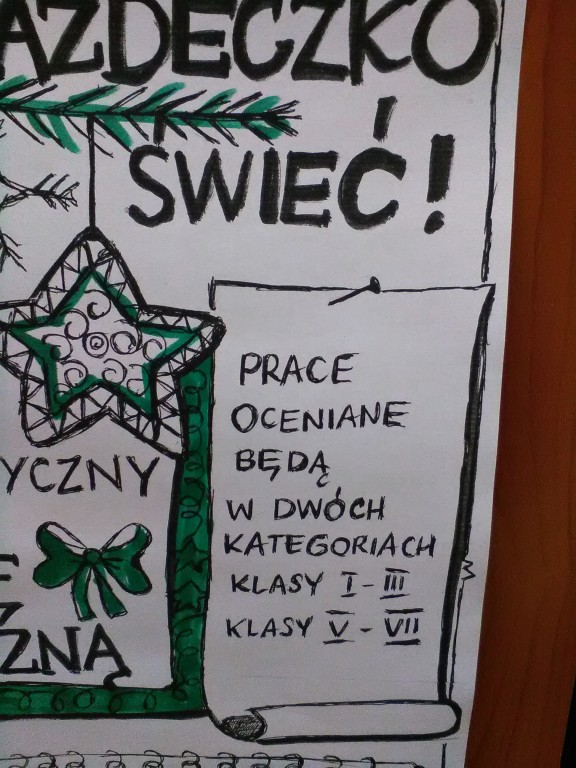 AZDECZKO
ŚWIEĆ!
YCZNY
ZNĄ
PRACE
OCENIANE
BĘDĄ
W DWÓCH
KATEGORIACH
KLASY I-III
KLASY V-VII